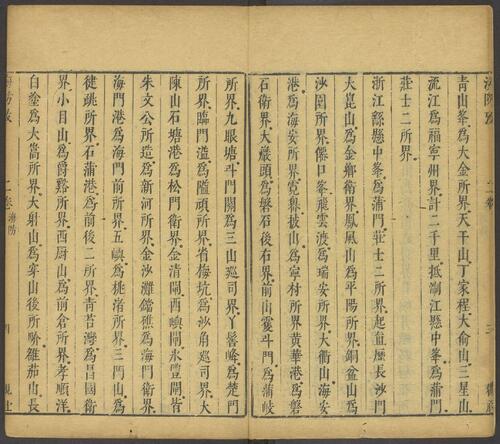 青山峯爲大金所界天千山丁家程大俞山三星山
流江爲福寧州界計二千里抵浙江懸中峯爲蒲門
莊士二所界
浙江縣懸中峯爲蒲門莊士二所界起直歷長沙門
大崑山爲金鄉衛界鳳凰山爲平陽所界銅盆山
沙園所界僊口峯飛雲渡爲瑞安所界大衢山海
港爲海安所界霓嶴披山爲寧村所界黃華港爲磐
石衛界大嚴頭爲磐石後石界前山靈斗門爲蒲岐
所界九眼塘斗門關爲三山廵司界丫髻峰爲楚門
所界臨門溢爲隘頑所界省梅坑爲沙角廵司界大
陳山石塘港爲松門衛界金清閘西嶼閘永豐閘皆
朱文公所造爲新河所界金沙灘鐺礁爲海門衛界
海門港爲海門前所界五嶼爲桃渚所界三門山爲
健跳所界石蒲港爲前後二所界青苔灣爲昌國衛
界小目山爲爵谿所界西厨山爲前倉所界孝順洋
白塗爲大嵩所界大射山爲穿山後所界雞茄山長
二卷
海防